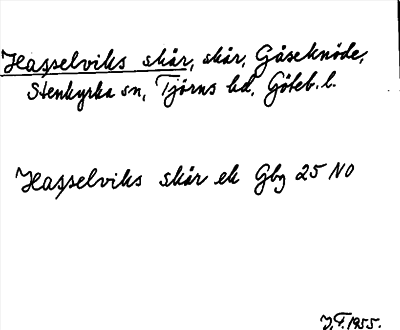 Hasselviks skär, skär, Gåseknöde,
Stenkyrka sn, Tjörns hd, Göteb. l.
Hasselviks skär ek Gbg 25 NO
J.F. 1955.